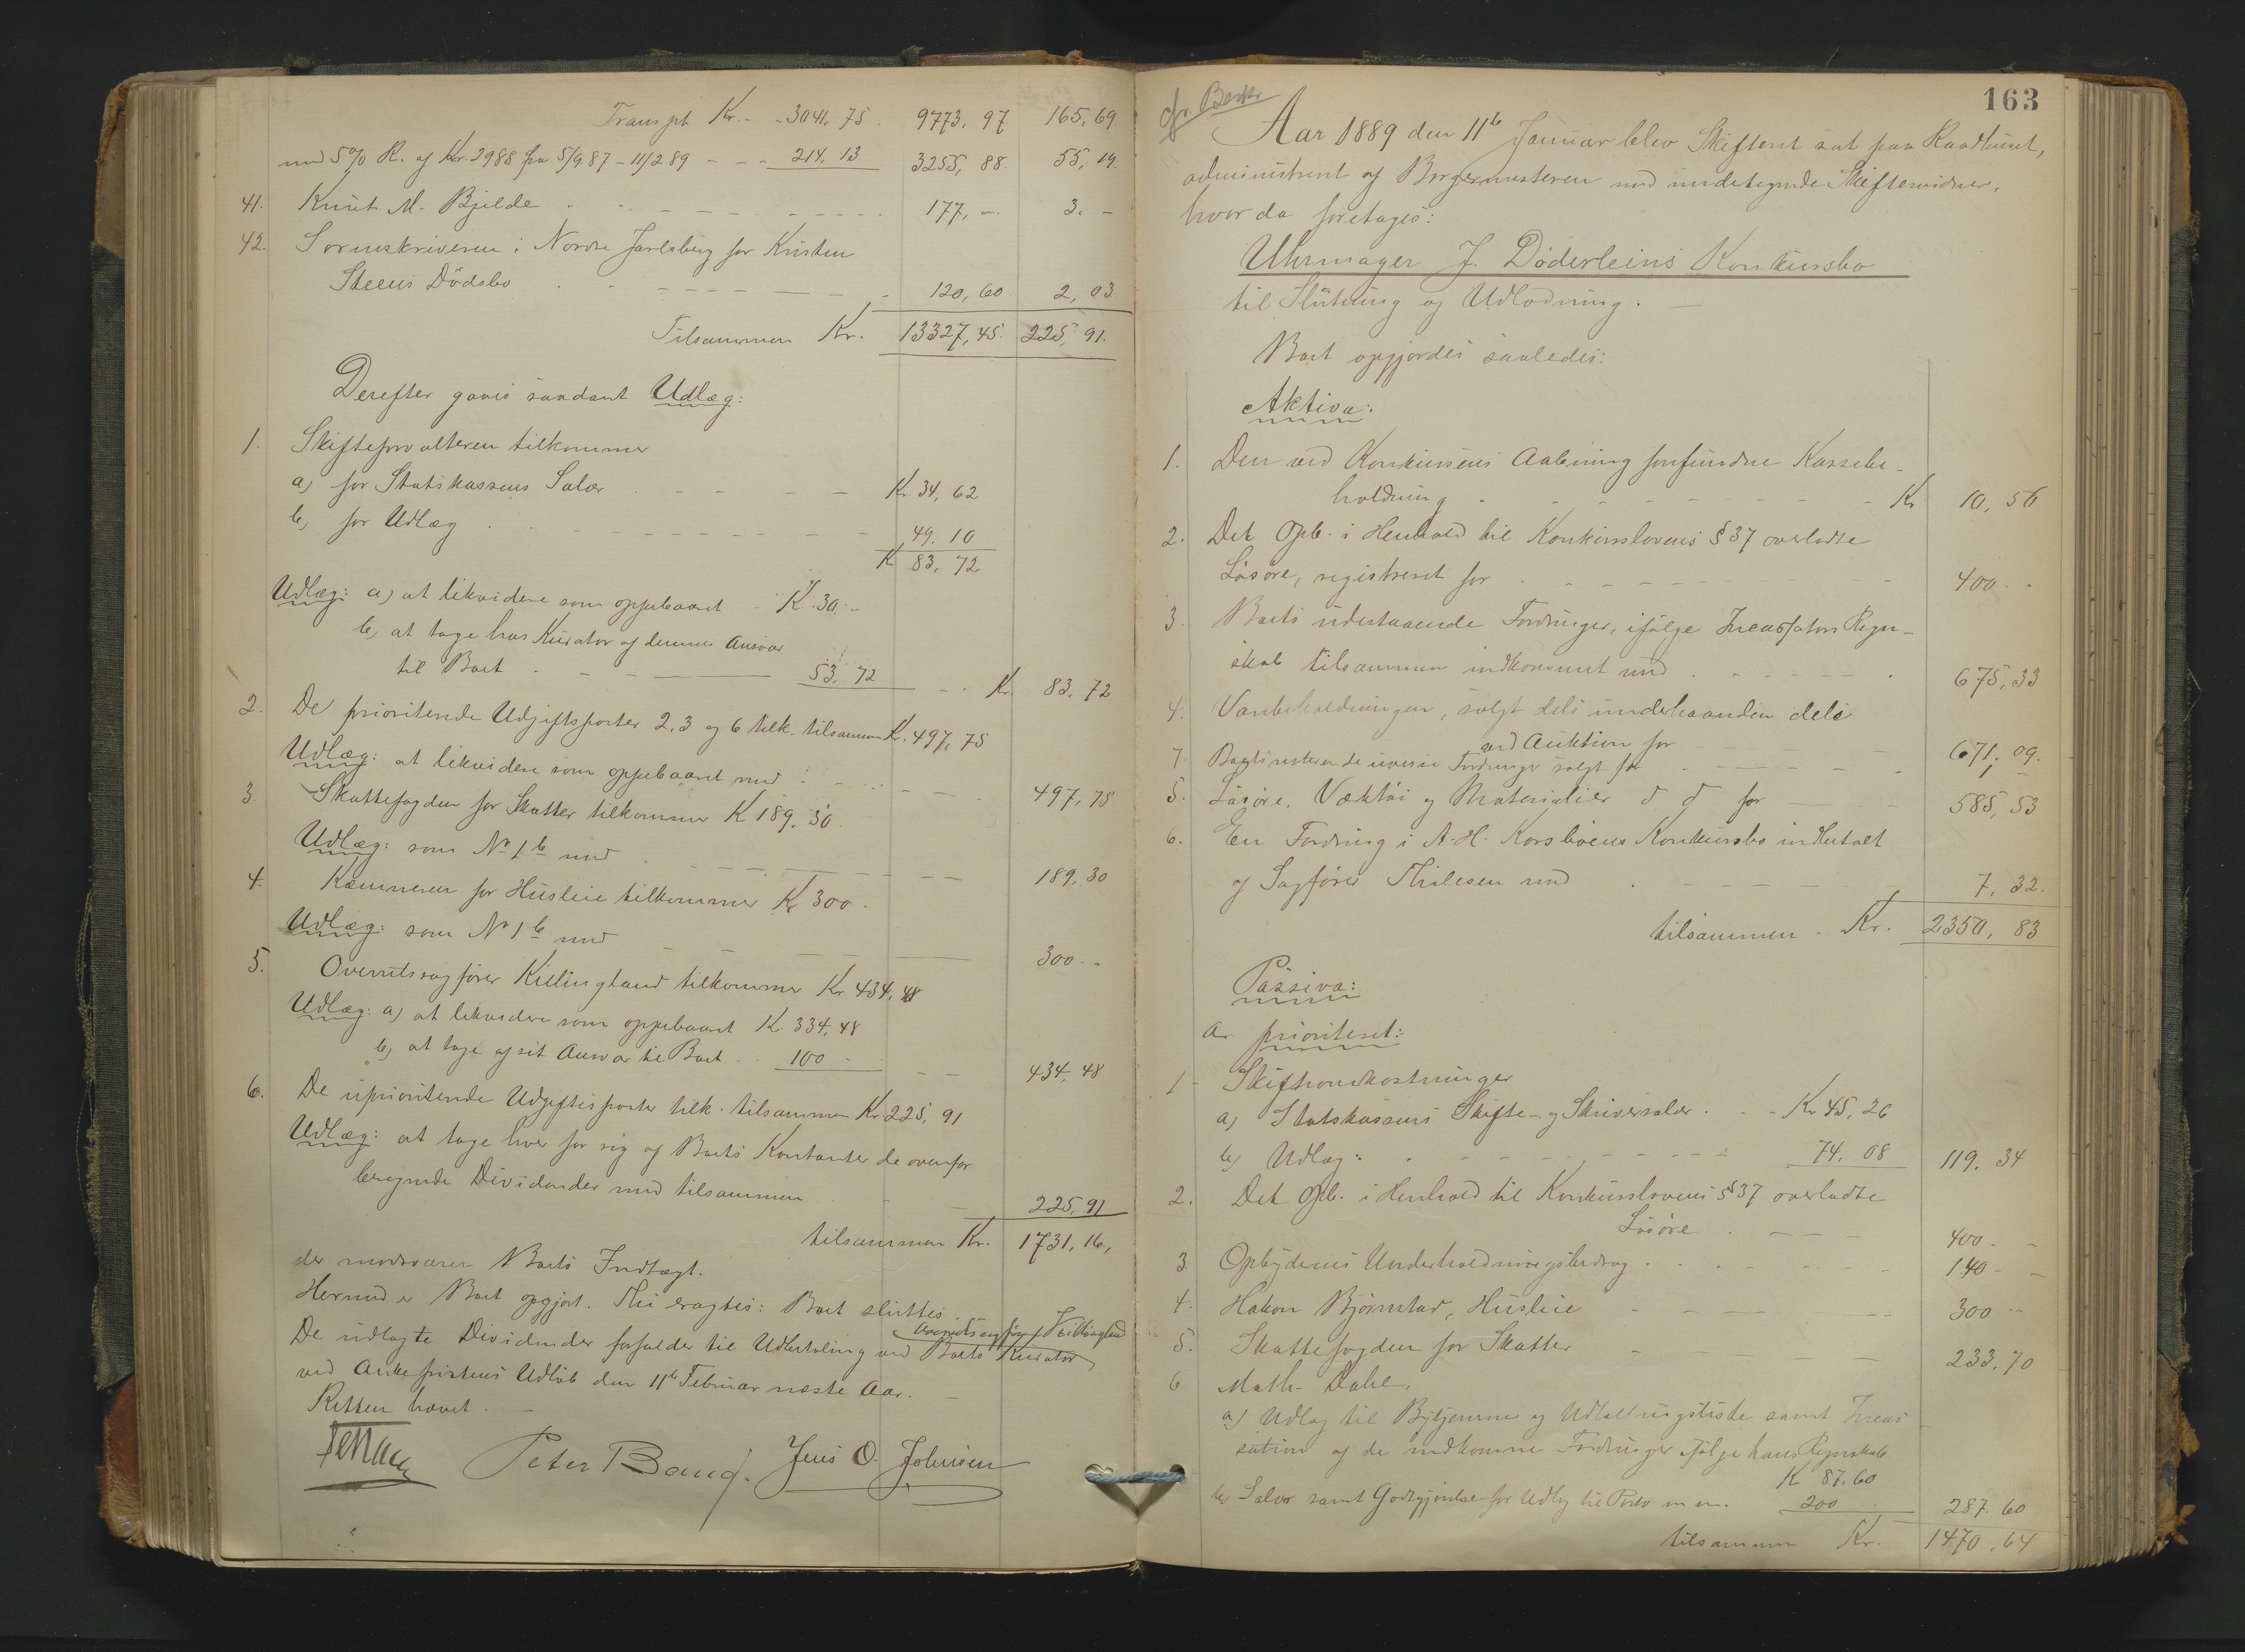 Transpt Kr. - 3041,75. 9773,97 165,69
med 5% R. af Kr. 2988 fra 5/9 87 - 11/2 89 - - - 214,13 3255,88. 55,19.
41. Knut M. Bjelde - - - - 177,- 3.-
42. Sorenskriveren i Nordre Jarlsberg for Kristen
Steens Dödsbo - - - - 120,60 2,03
Tilsammen Kr. 13327,45. 225,91.
Derefter gaves saadant Udlæg:
1. Skifteforvalteren tilkommer
a) for Statskassens Salær - - - Kr. 34,62
b) for Udlæg - - - - 49.10
Kr. 83,72
Udlæg: a) at likvidere som oppebaaret - Kr. 30.-
b) at tage hos Kurator af dennes Ansvar
til Boet - - - 53.72 - - Kr. 83.72
2. De prioriterede Udgiftsposter 2, 3 og 6 tilk. tilsammen Kr. 497,75
Udlæg: at likvidere som oppebaaret med - - - 497,75
3. Skattefogden for Skatter tilkommer Kr 189,30
Udlæg: som No 1 b med - - - 189,30
4. Kæmneren for Husleie tilkommer Kr 300.
Udlæg: som No 1 b med - - - 300.-
5. Overretssagfører Killingland tilkommer Kr 434,48
Udlæg: a) at likvidere som oppebaaret Kr. 334,48
b) at tage af sit Ansvar til Boet - 100 - - - 434,48
6. De uprioriterede Udgiftsposter tilk. tilsammen Kr 225,91
Udlæg: at tage hver for sig af Boets Kontanter de ovenfor
beregnede Dividender med tilsammen - - 225,91
tilsammen Kr. 1731,16,
der modsvarer Boets Indtægt.
Hermed er Boet opgjort. Thi eragtes: Boet sluttes.
Overretssagfører Killingland
De udlagte Dividender forfalder til Udbetaling ved Boets Kurator
ved Ankefristens Udløb den 11te Februar næste Aar.
Retten hævet. -
Peter Bang. Jens O. Johnsen
163
cfr. Beskr
Aar 1889 den 11te Januar blev Skifteret sat paa Raadhuset,
administreret af Borgermesteren med undertegnede Skiftevidner,
hvor da foretages:
Uhrmager J. Döderleins Konkursbo
til Slutning og Udlodning. -
Boet opgjordes saaledes:
Aktiva:
1. Den ved Konkursens Aabning forefundne Kassebe-
holdning - - - - Kr 10,56
2. Det Opb. i Henhold til Konkurslovens § 37 overladte
Løsøre, registreret for - - - - 400.-
3. Boets udestaaende Fordringer, ifølge Incassators Regn-
skab tilsammen indkommet med - - - - 675,33
4. Varebeholdningen, solgt dels underhaanden dels
ved Auktion for - - - 671,09.
7. Boets resterende uvisse Fordringer solgt for - - - 1,-
5. Løsøre, Værktøi og Materialier d d for - - 585,53
6. En Fordring i A. H. Korsbøens Konkursbo indbetalt
af Sagfører Thilesen med - - - 7,32.
tilsammen - Kr. 2350,83
Passiva:
a. prioriteret:
1 - Skifteomkostninger
a) Statskassens Skifte- og Skriversalær - - Kr 45,26
b) Udlæg: - - - - 74.08 119.34
2. Det Opb. i Henhold til Konkurslovens § 37 overladte
Løsøre - - - 400.-
3. Opbydenes Underholdningsbidrag - - - - 140.-
4. Hakon Bjørnstad, Husleie - - - 300.-
5. Skattefogden for Skatter - - - 233,70
6 Math. Dahl.
a) Udlæg til Bytjenerne og Udlodningsliste samt Incas
sation af de indkomne Fordringer ifølge hans Regnskab
Kr 87.60
b) Salær samt Godtgjørelse for Udlæg til Porto m.m. 200 287.60
tilsammen Kr. 1470,64